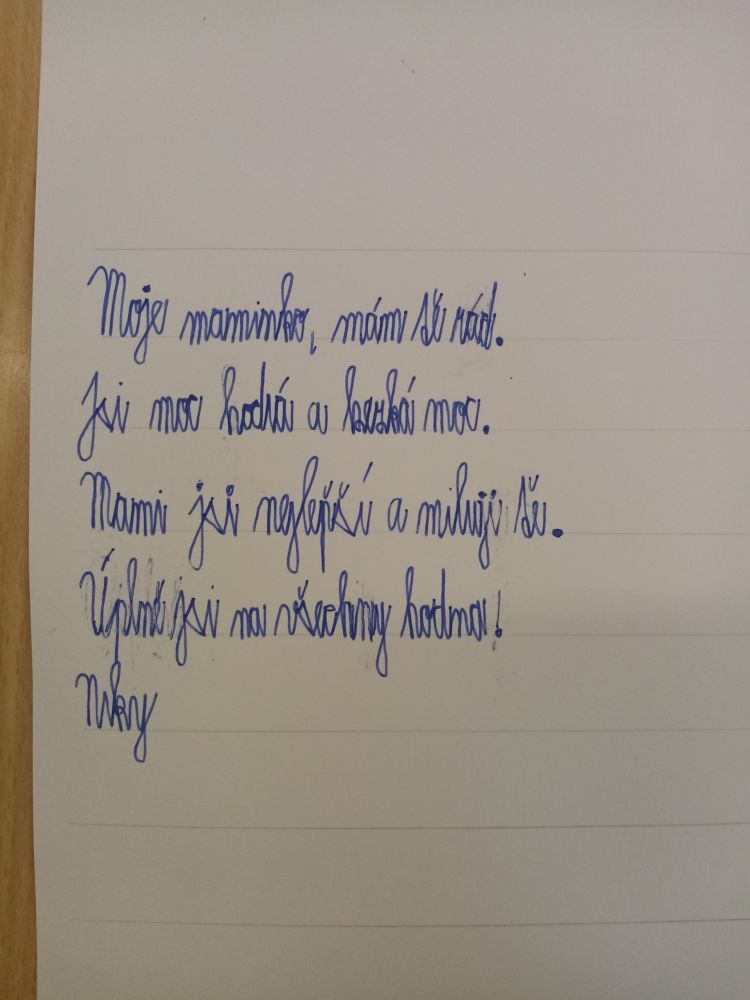 Moje maminko, mám tě rád.
Jsi moc hodná a hezká moc.
Mami jsi nejlepší a miluji tě.
Úplně jsi na všechny hodna!